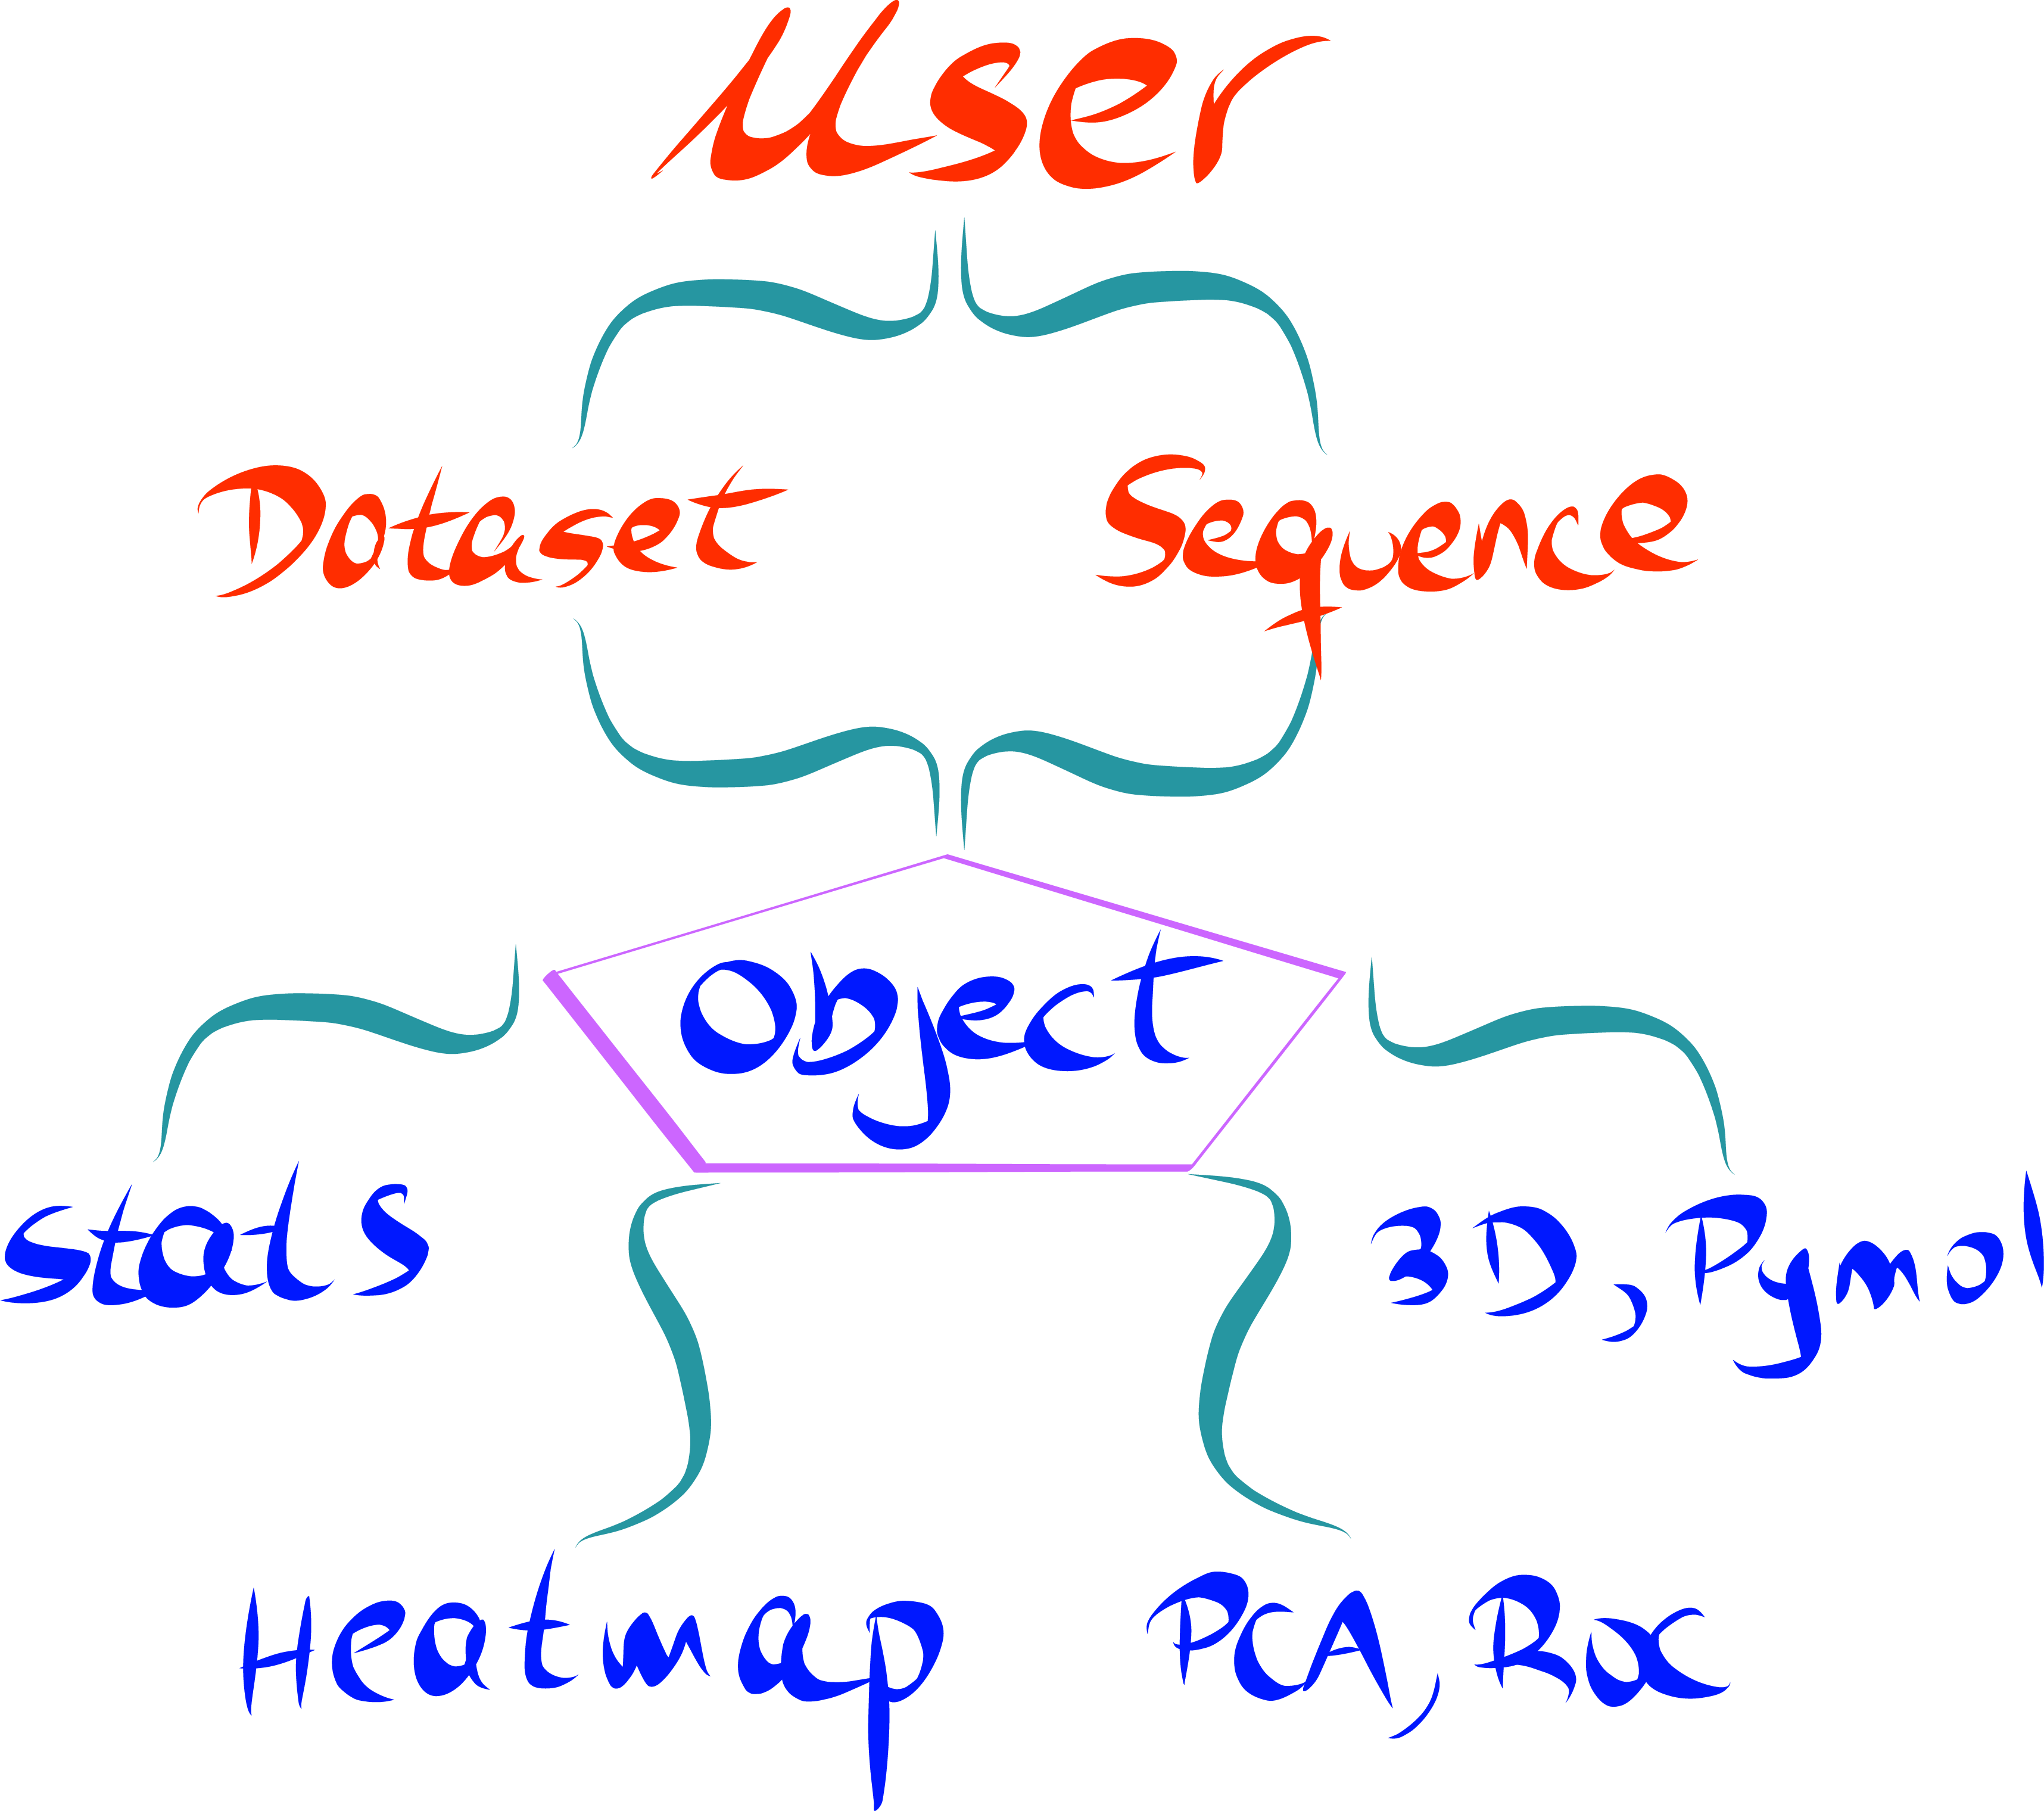 user
Dataset Sequence
Object
stats 3D, Pymol
Heatmap PCA, Roc